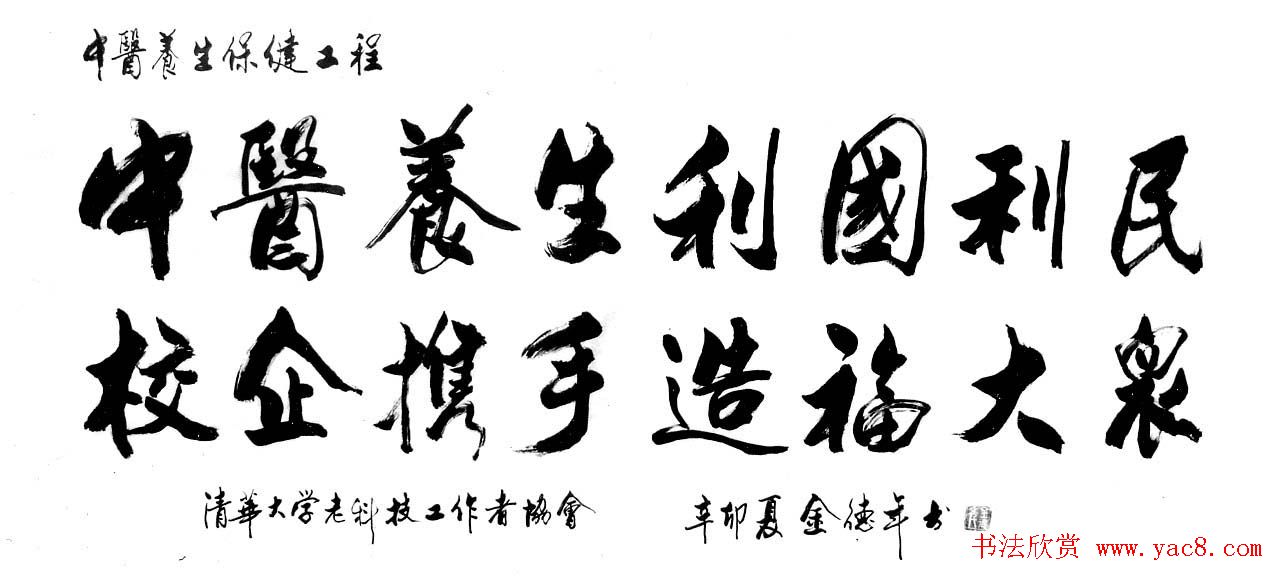 中醫養生保健工程
中醫養生利國利民
校企攜手造福大眾
清華大学老科技工作者協會
辛卯夏 金德年书
书法欣赏 www.yac8.com